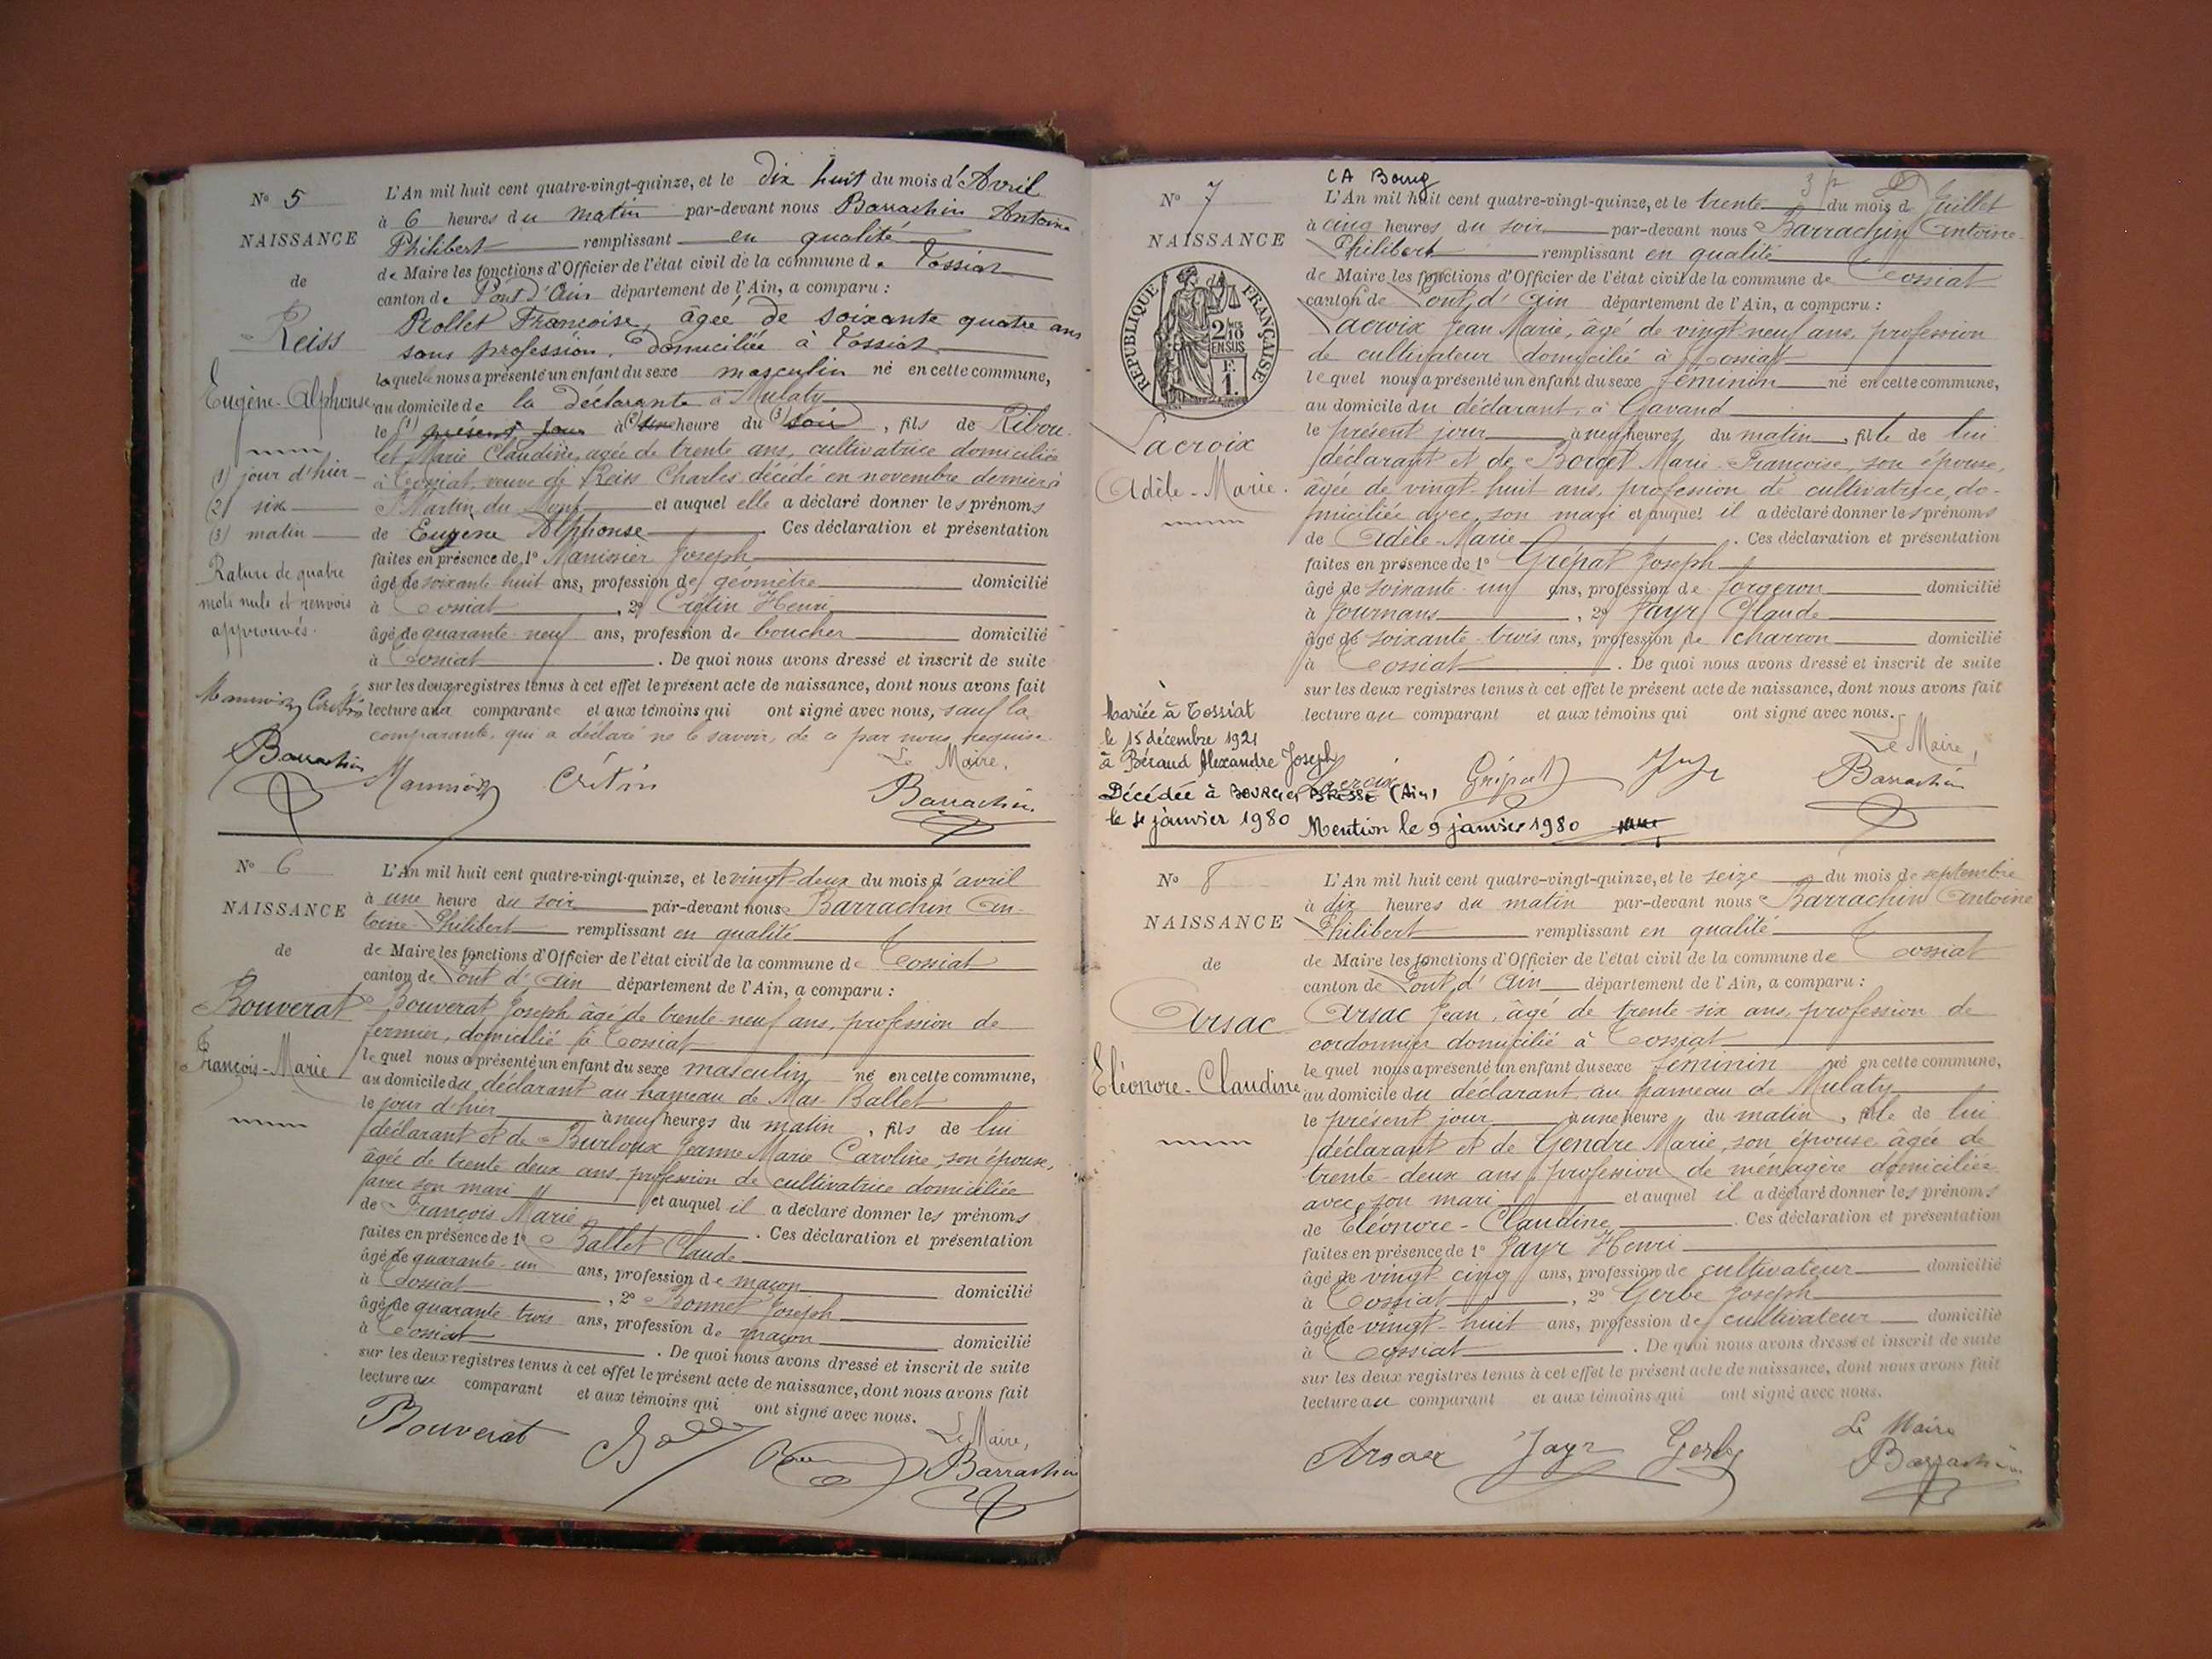 N° 5
NAISSANCE
de
Reiss
Eugène-Alphonse
(1) jour d'hier
(2) six
(3) matin
Rature de quatre
mots nuls et renvois
approuvés.
L'An mil huit cent quatre-vingt-quinze, et le dix huit du mois d'Avril
à 6 heures du matin par-devant nous Barrachin Antoine
Philibert remplissant en qualité
de Maire les fonctions d'Officier de l'état civil de la commune de Tossiat
canton de Pont d'Ain département de l'Ain, a comparu :
Françoise, âgée de soixante quatre ans
sans profession, domiciliée à Tossiat
laquelle nous a présenté un enfant du sexe masculin né en cette commune,
au domicile de la déclarante à Mulaty
le (1) présent jour à (2) une heure du (3) soir, fils de Ribou
let Marie Claudine, agée de trente ans, cultivatrice domiciliée
à Tossiat, veuve de Reiss Charles décédé en novembre dernier à
St Martin du Mont et auquel elle a déclaré donner les prénoms
de Eugène Alphonse. Ces déclaration et présentation
faites en présence de 1° Joseph
âgé de soixante huit ans, profession de géomètre domicilié
à Tossiat, 2° Crétin Henri
âgé de quarante-neuf ans, profession de boucher domicilié
à Tossiat. De quoi nous avons dressé et inscrit de suite
sur les deux registres tenus à cet effet le présent acte de naissance, dont nous avons fait
lecture à la comparante et aux témoins qui ont signé avec nous, sauf la
comparante, qui a déclaré ne le savoir, de ce par nous requise.
Le Maire,
Barrachin Crétin Barrachin
N° 6
NAISSANCE
de
Bouverat
François-Marie
L'An mil huit cent quatre-vingt-quinze, et le vingt-deux du mois d'avril
à une heure du soir par-devant nous Barrachin An-
toine Philibert remplissant en qualité
de Maire les fonctions d'Officier de l'état civil de la commune de Tossiat
canton de Pont d'Ain département de l'Ain, a comparu :
Bouverat Joseph âgé de trente-neuf ans, profession de
fermier, domicilié à Tossiat
lequel nous a présenté un enfant du sexe masculin né en cette commune,
au domicile du déclarant au hameau de Mas Ballet
le jour d'hier à neuf heures du matin, fils de lui
déclarant et de Burloux Jeanne Marie Caroline, son épouse,
âgée de trente deux ans, profession de cultivatrice domiciliée
avec son mari et auquel il a déclaré donner les prénoms
de François Marie. Ces déclaration et présentation
faites en présence de 1° Ballet Claude
âgé de quarante-un ans, profession de maçon domicilié
à Tossiat, 2° Bonnet Joseph
âgé de quarante trois ans, profession de maçon domicilié
à Tossiat. De quoi nous avons dressé et inscrit de suite
sur les deux registres tenus à cet effet le présent acte de naissance, dont nous avons fait
lecture au comparant et aux témoins qui ont signé avec nous.
Le Maire,
Bouverat Barrachin
CA Bourg
N° 7
NAISSANCE
RÉPUBLIQUE FRANÇAISE
2/10 EN SUS
F. 1.
Lacroix
Adèle-Marie.
L'An mil huit cent quatre-vingt-quinze, et le trente du mois de Juillet
à cinq heures du soir par-devant nous Barrachin Antoine
Philibert remplissant en qualité
de Maire les fonctions d'Officier de l'état civil de la commune de Tossiat
canton de Pont d'Ain département de l'Ain, a comparu :
Lacroix Jean Marie, âgé de vingt-neuf ans, profession
de cultivateur domicilié à Tossiat
lequel nous a présenté un enfant du sexe féminin né en cette commune,
au domicile du déclarant, à Gavand
le présent jour à neuf heures du matin, fille de lui
déclarant et de Borget Marie-Françoise, son épouse,
âgée de vingt-huit ans, profession de cultivatrice, do-
miciliée avec son mari et auquel il a déclaré donner les prénoms
de Adèle-Marie. Ces déclaration et présentation
faites en présence de 1° Grépat Joseph
âgé de soixante-un ans, profession de forgeron domicilié
à Journans, 2° Jayr Claude
âgé de soixante-trois ans, profession de charron domicilié
à Tossiat. De quoi nous avons dressé et inscrit de suite
sur les deux registres tenus à cet effet le présent acte de naissance, dont nous avons fait
lecture au comparant et aux témoins qui ont signé avec nous.
Mariée à Tossiat
le 15 décembre 1921
à Béraud Alexandre Joseph
Lacroix Grépat Jayr
Le Maire,
Barrachin
Décédée à BOURG en BRESSE (Ain)
le 4 janvier 1980 Mention le 9 janvier 1980
N° 8
NAISSANCE
de
Arsac
Eléonore-Claudine
L'An mil huit cent quatre-vingt-quinze, et le seize du mois de septembre
à dix heures du matin par-devant nous Barrachin Antoine
Philibert remplissant en qualité
de Maire les fonctions d'Officier de l'état civil de la commune de Tossiat
canton de Pont d'Ain département de l'Ain, a comparu :
Arsac Jean, âgé de trente-six ans, profession de
cordonnier domicilié à Tossiat
lequel nous a présenté un enfant du sexe féminin né en cette commune,
au domicile du déclarant, au hameau de Mulaty
le présent jour à une heure du matin, fille de lui
déclarant et de Gendre Marie, son épouse âgée de
trente-deux ans, profession de ménagère domiciliée
avec son mari et auquel il a déclaré donner les prénoms
de Eléonore-Claudine. Ces déclaration et présentation
faites en présence de 1° Jayr Henri
âgé de vingt-cinq ans, profession de cultivateur domicilié
à Tossiat, 2° Gerbe Joseph
âgé de vingt-huit ans, profession de cultivateur domicilié
à Tossiat. De quoi nous avons dressé et inscrit de suite
sur les deux registres tenus à cet effet le présent acte de naissance, dont nous avons fait
lecture au comparant et aux témoins qui ont signé avec nous.
Le Maire
Arsac Jayr Gerbe Barrachin